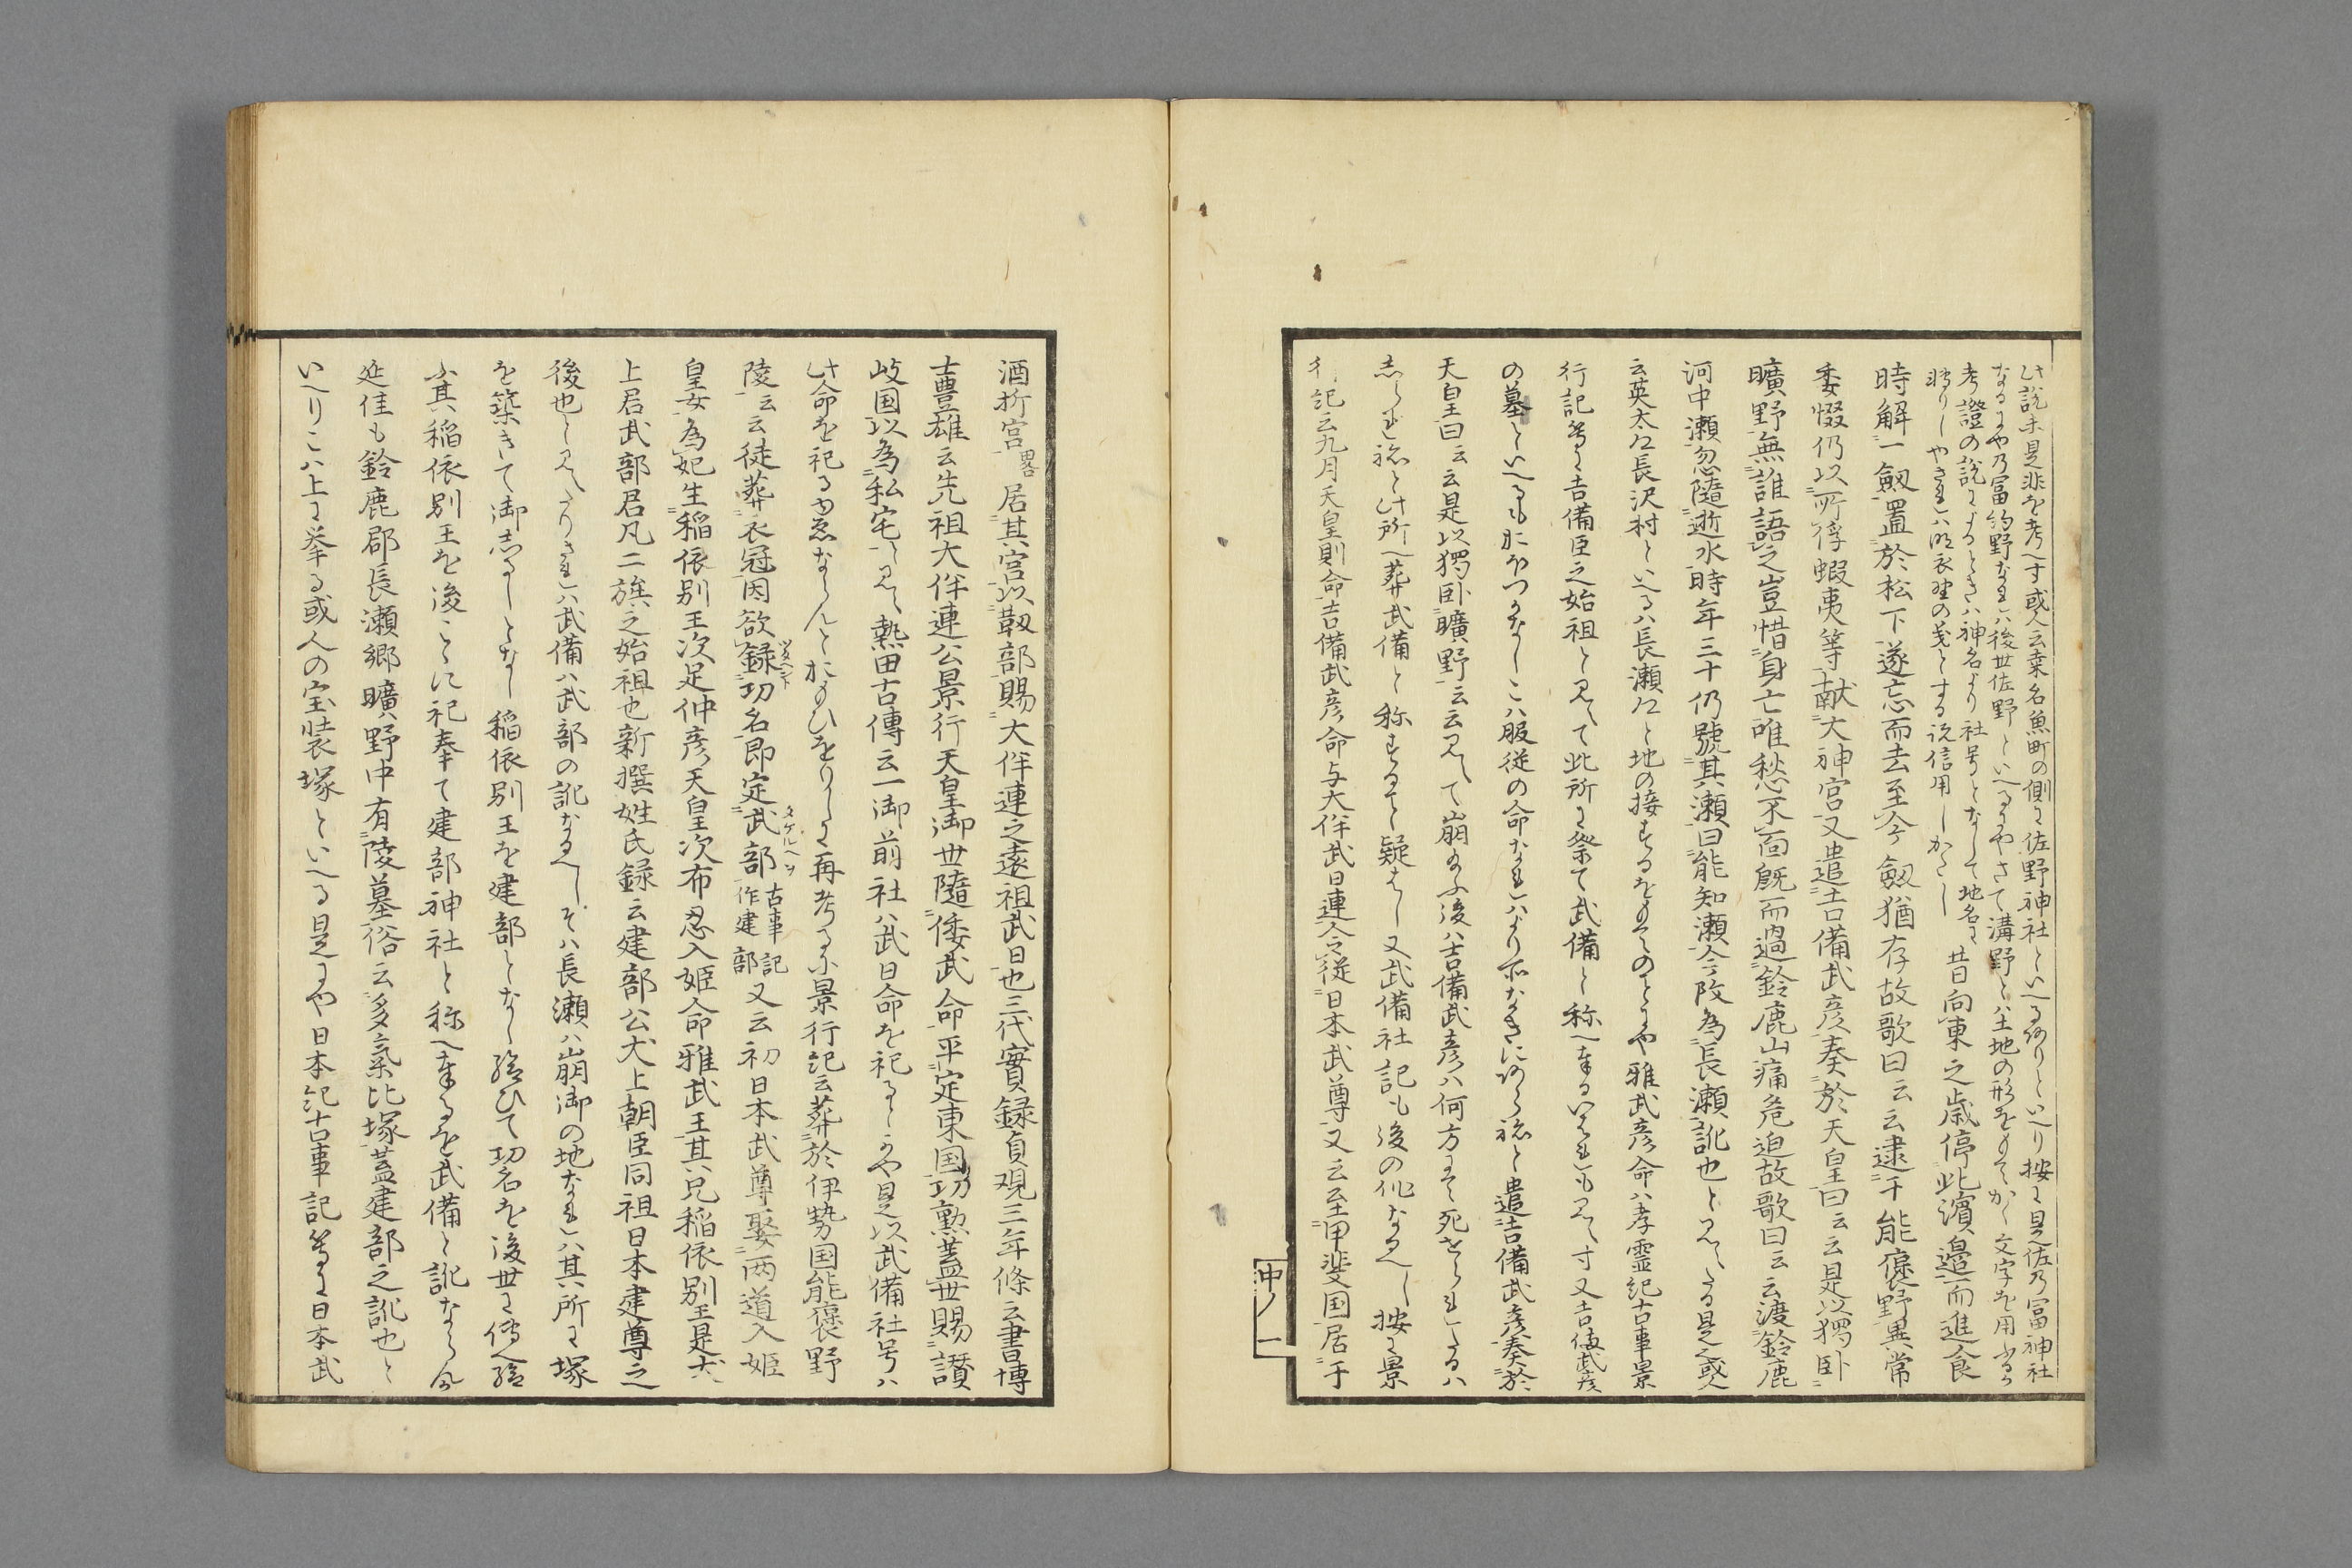 此説未是非を考へす或人云桑名魚町の側に佐野神社といへる有りといへり按に是佐乃冨神社
なるにや乃冨約野なれハ後世佐野といへるにやさて溝野とハ土地の形をもてかく文字を用ふるか
考證の説によるときハ神名より社号となして地名に
昔向東之歳停此濱邉而進食
時解一劔置於松下遂忘而去至今劔猶存故歌曰云云逮于能褒野異常
委惙仍以所俘蝦夷等献大神宮又遣吉備武彦奏於天皇曰云云是以獨臥
曠野無誰語之豈惜身亡唯愁不面既而過鈴鹿山痛危迫故歌曰云云渡鈴鹿
河中瀬忽隨逝水時年三十仍號其瀬曰能知瀬今改為長瀬訛也と見えたる是也或人
云英太及長沢村といへるハ長瀬及と地の接するをもてのことにや雅武彦命ハ孝霊紀古事景
行記等に吉備臣之始祖と見えて此所に祭て武備と称へ奉るいはれも見えす又吉備武彦
の墓といへるもおほつかなしこハ服従の命なれハより所なきに有らねと遣吉備武彦奏於
天皇曰云云是以獨臥曠野云云見えて崩給ふ後ハ吉備武彦ハ何方にて死せられたるハ
志られねと此所へ葬武備と称するそと疑はし又武備社記も後の作なるへし按に景
行記云九月天皇則命吉備武彦命与大伴武日連令従日本武尊又云至甲斐国居于
中ノ二
酒折宮畧居其宮以靱部賜大伴連之遠祖武日也三代實録貞観三年條云書博
士豊雄云先祖大伴連公景行天皇御世隨倭武命平定東国功勲蓋世賜讃
岐国以為私宅と見え熱田古傳云一御前社ハ武日命を祀るとかや是以武備社号ハ
此命を祀るゆゑならんとおもひをりしに再考るに景行記云葬於伊勢国能褒野
陵云云徒葬衣冠因欲録功名即定武部古事記作建部又云初日本武尊娶両道入姫
皇女為妃生稲依別王次足仲彦天皇次布忍入姫命雅武王其兄稲依別王是犬
上君武部君凡二族之始祖也新撰姓氏録云建部公犬上朝臣同祖日本建尊之
後也と見えたりされハ武備ハ武部の訛なるへしそハ長瀬ハ崩御の地なれハ其所に塚
を築きて御志るしとなし稲依別王を建部となし給ひて功名を後世に傳へ給
ふ其稲依別王を後ここに祀奉て建部神社と称へ奉るを武備と訛ならん欤
延佳も鈴鹿郡長瀬郷曠野中有陵墓俗云多氣比塚蓋建部之訛也と
いへりこハ上に挙る或人の宝装塚といへる是にや日本紀古事記等に日本武